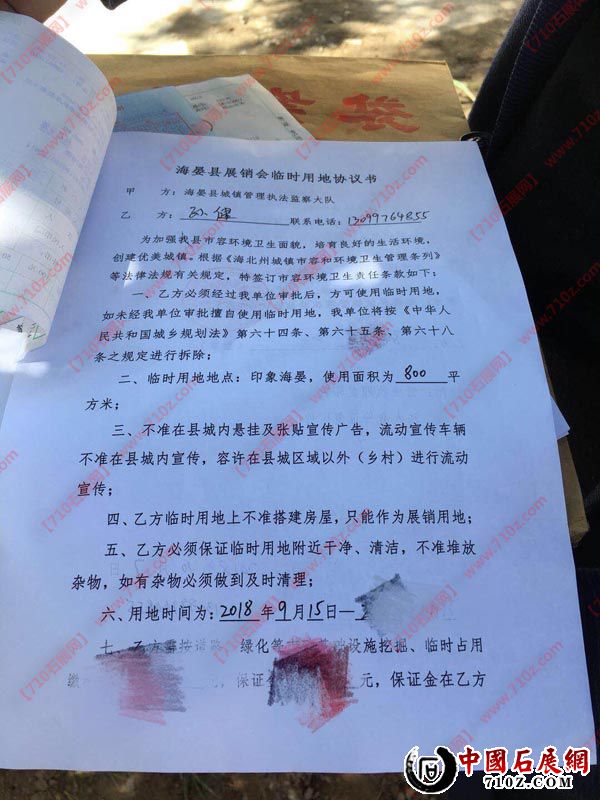 海晏县展销会临时用地协议书
甲 方：海晏县城镇管理执法监察大队
乙 方：孙健 联系电话：13099764855
为加强我县市容环境卫生面貌，培育良好的生活环境，
创建优美城镇。根据《海北州城镇市容和环境卫生管理条列》
等法律法规有关规定，特签订市容环境卫生责任条款如下：
一、乙方必须经过我单位审批后，方可使用临时用地，
如未经我单位审批擅自使用临时用地，我单位将按《中华人
民共和国城乡规划法》第六十四条、第六十五条、第六十八
条之规定进行拆除；
二、临时用地地点：印象海晏，使用面积为 800 平
方米；
三、不准在县城内悬挂及张贴宣传广告，流动宣传车辆
不准在县城内宣传，容许在县城区域以外（乡村）进行流动
宣传；
四、乙方临时用地上不准搭建房屋，只能作为展销用地；
五、乙方必须保证临时用地附近干净、清洁，不准堆放
杂物，如有杂物必须做到及时清理；
六、用地时间为：2018 年 9 月 15 日—
七、乙方需按道路、绿化等 设施挖掘、临时占用
缴 元，保证金 元，保证金在乙方
【710石展网】www.710z.com
中國石展網
710Z.COM